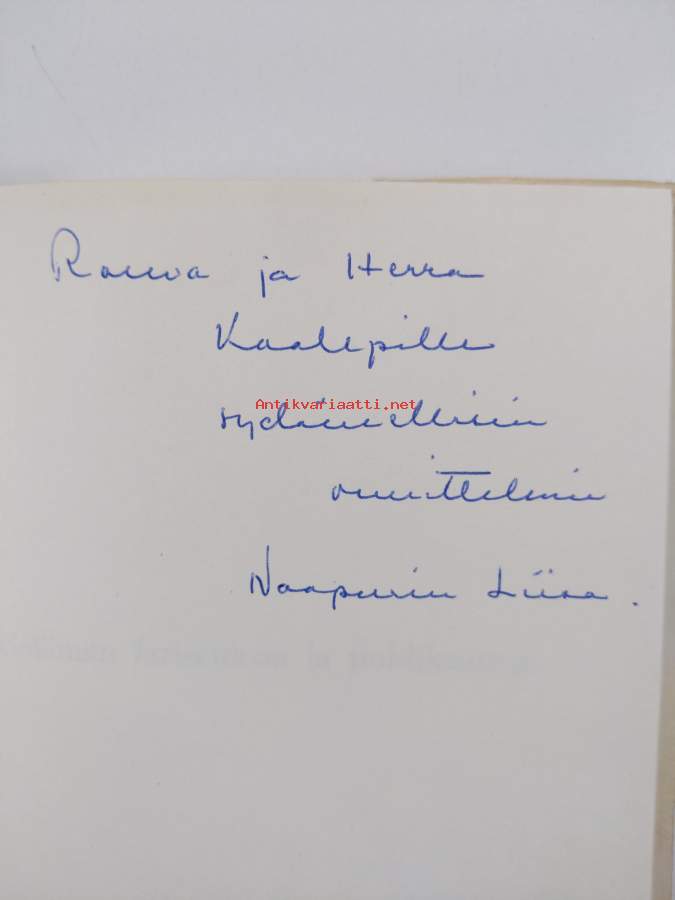 Rouva ja Herra
Kaalepille
Antikvariaatti.net
sydämellisin
onnitteluin
Naapurin Liisa.